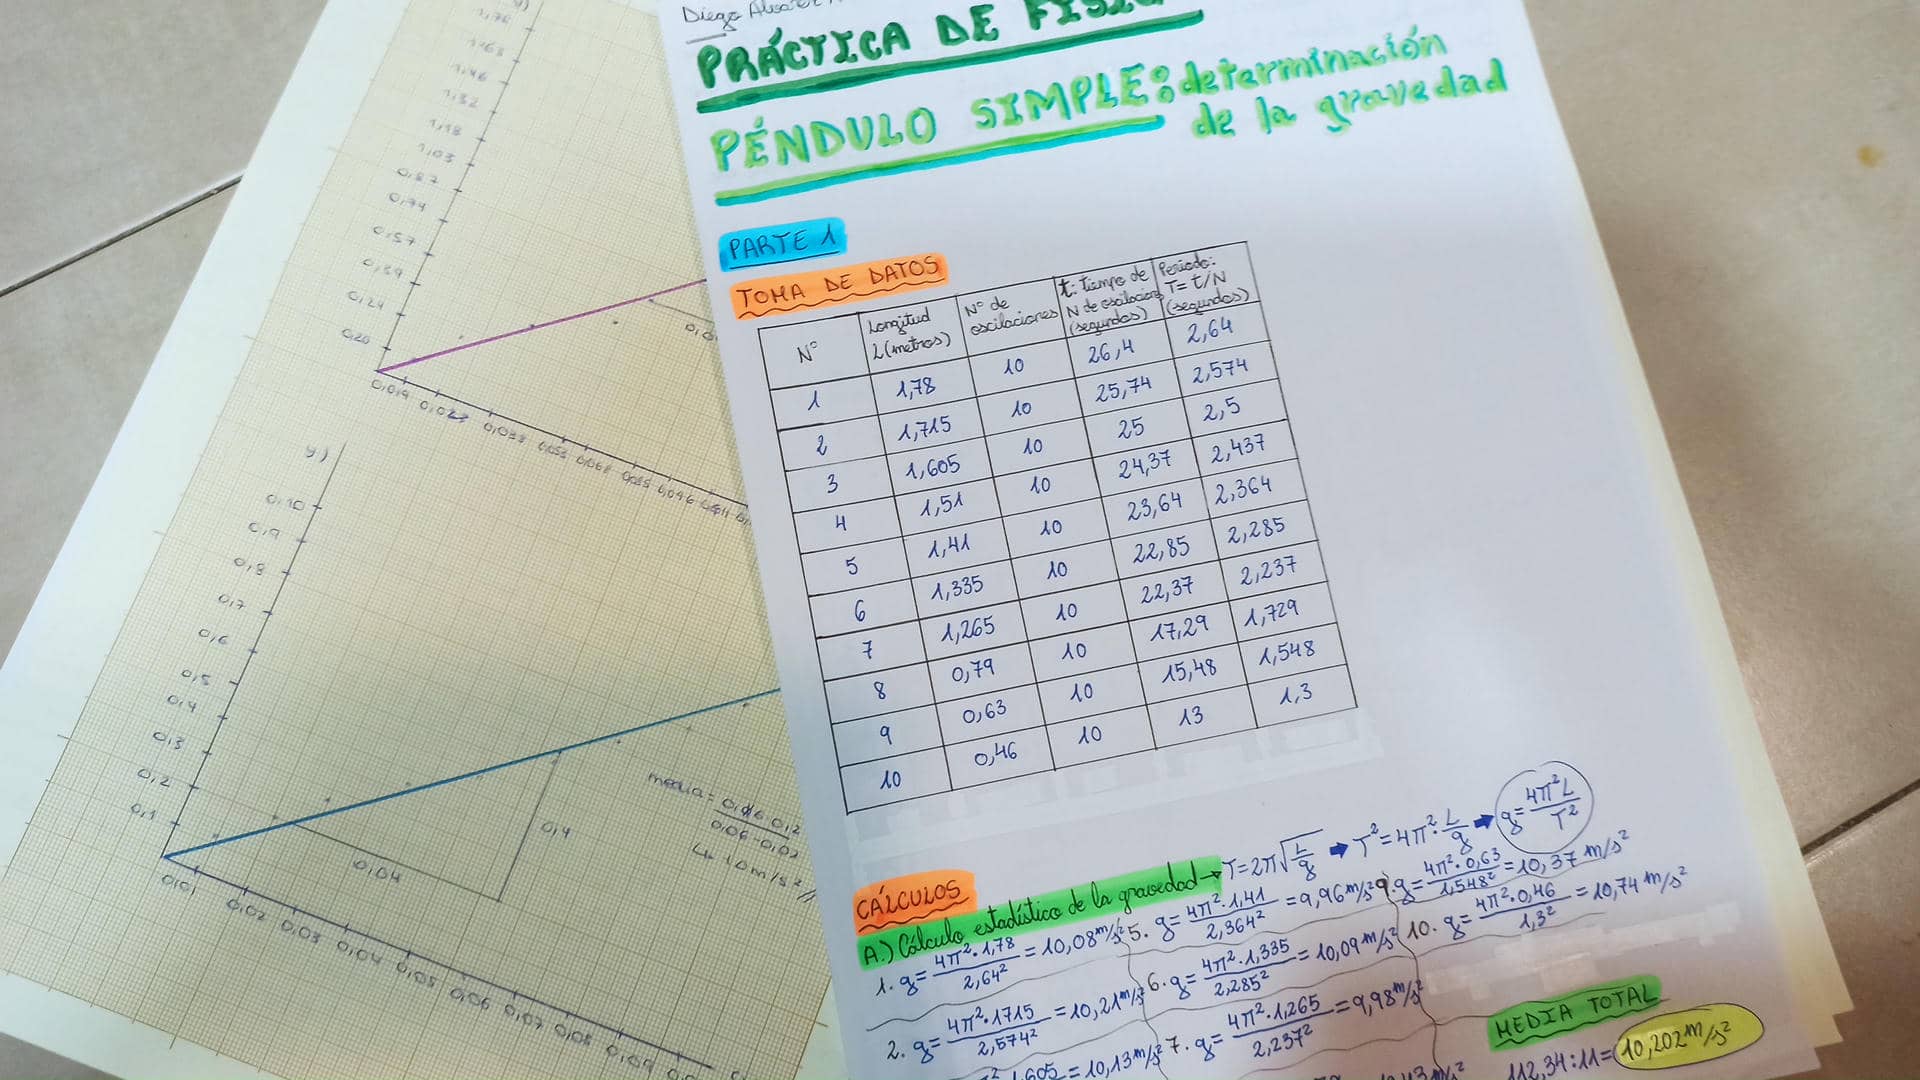 Diego
PRÁCTICA DE
PÉNDULO SIMPLE: determinación
de la gravedad
PARTE 1
TOMA DE DATOS
Nº | Longitud L (metros) | Nº de oscilaciones | t: tiempo de N de oscilaciones (segundos) | Periodo: T= t/N (segundos)
1 | 1,78 | 10 | 26,4 | 2,64
2 | 1,715 | 10 | 25,74 | 2,574
3 | 1,605 | 10 | 25 | 2,5
4 | 1,51 | 10 | 24,37 | 2,437
5 | 1,41 | 10 | 23,64 | 2,364
6 | 1,335 | 10 | 22,85 | 2,285
7 | 1,265 | 10 | 22,37 | 2,237
8 | 0,79 | 10 | 17,29 | 1,729
9 | 0,63 | 10 | 15,48 | 1,548
10 | 0,46 | 10 | 13 | 1,3
CÁLCULOS
A.) Cálculo estadístico de la gravedad → T=2π√(L/g) → T²=4π²·L/g → g=4π²L/T²
1. g= 4π²·1,78/2,64² = 10,08 m/s²
2. g= 4π²·1715/2,574² = 10,21 m/s²
1,605 = 10,13 m/s²
5. g= 4π²·1,41/2,364² = 9,96 m/s²
6. g= 4π²·1,335/2,285² = 10,09 m/s²
7. g= 4π²·1,265/2,237² = 9,98 m/s²
9. g= 4π²·0,63/1,548² = 10,37 m/s²
10. g= 4π²·0,46/1,3² = 10,74 m/s²
MEDIA TOTAL
112,34:11= 10,202 m/s²
1,32
1,18
1,03
0,87
0,74
0,57
0,39
0,24
0,20
0,019
0,068
0,096
y)
0,10
0,9
0,8
0,7
0,6
0,5
0,4
0,3
0,2
0,1
0,01
0,02
0,03
0,04
0,05
0,06
0,07
0,08
0,09
0,04
0,4
media =
10 m/s²